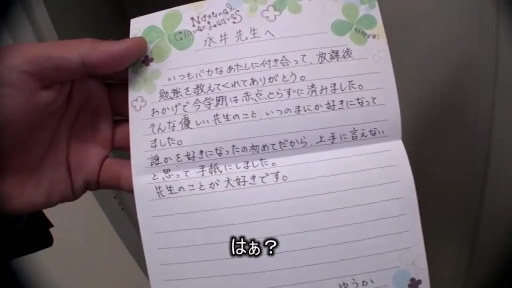 Natural
水井先生へ
いつもバカなあたしに付き合って、放課後
勉強を教えてくれてありがとう。
おかげで今学期は赤点とらずに済みました。
そんな優しい先生のこと、いつのまにか好きになって
ました。
誰かを好きになったの初めてだから、上手に言えない
と思って手紙にしました。
先生のことが大好きです。
はぁ?
ゆうか